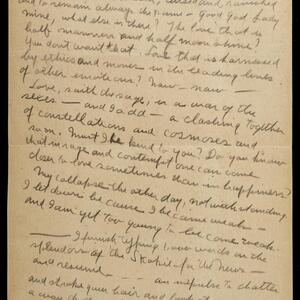 to remain always the same - Good God Lady
mine, what else is there? The love that is
half manners and half moonshine?
You don't want that. Love that is harnessed
by ethics and mores in the leading lines
of other emotions? Now - now -
Love, saith the sage, is a war of the
sexes - and I add - a clashing together
of constellations and cosmoses and
sam. Must I be kind to you? Do you know
that in rage and contempt one can come
closer to love sometimes than in happiness?
My collapse the other day, notwithstanding
I let down because I became weak -
and I am yet too young to become weak.
- I finish typing 1,000 words on the
splendors of the for the News -
and resume - an impulse to chatter
and stroke your hair and